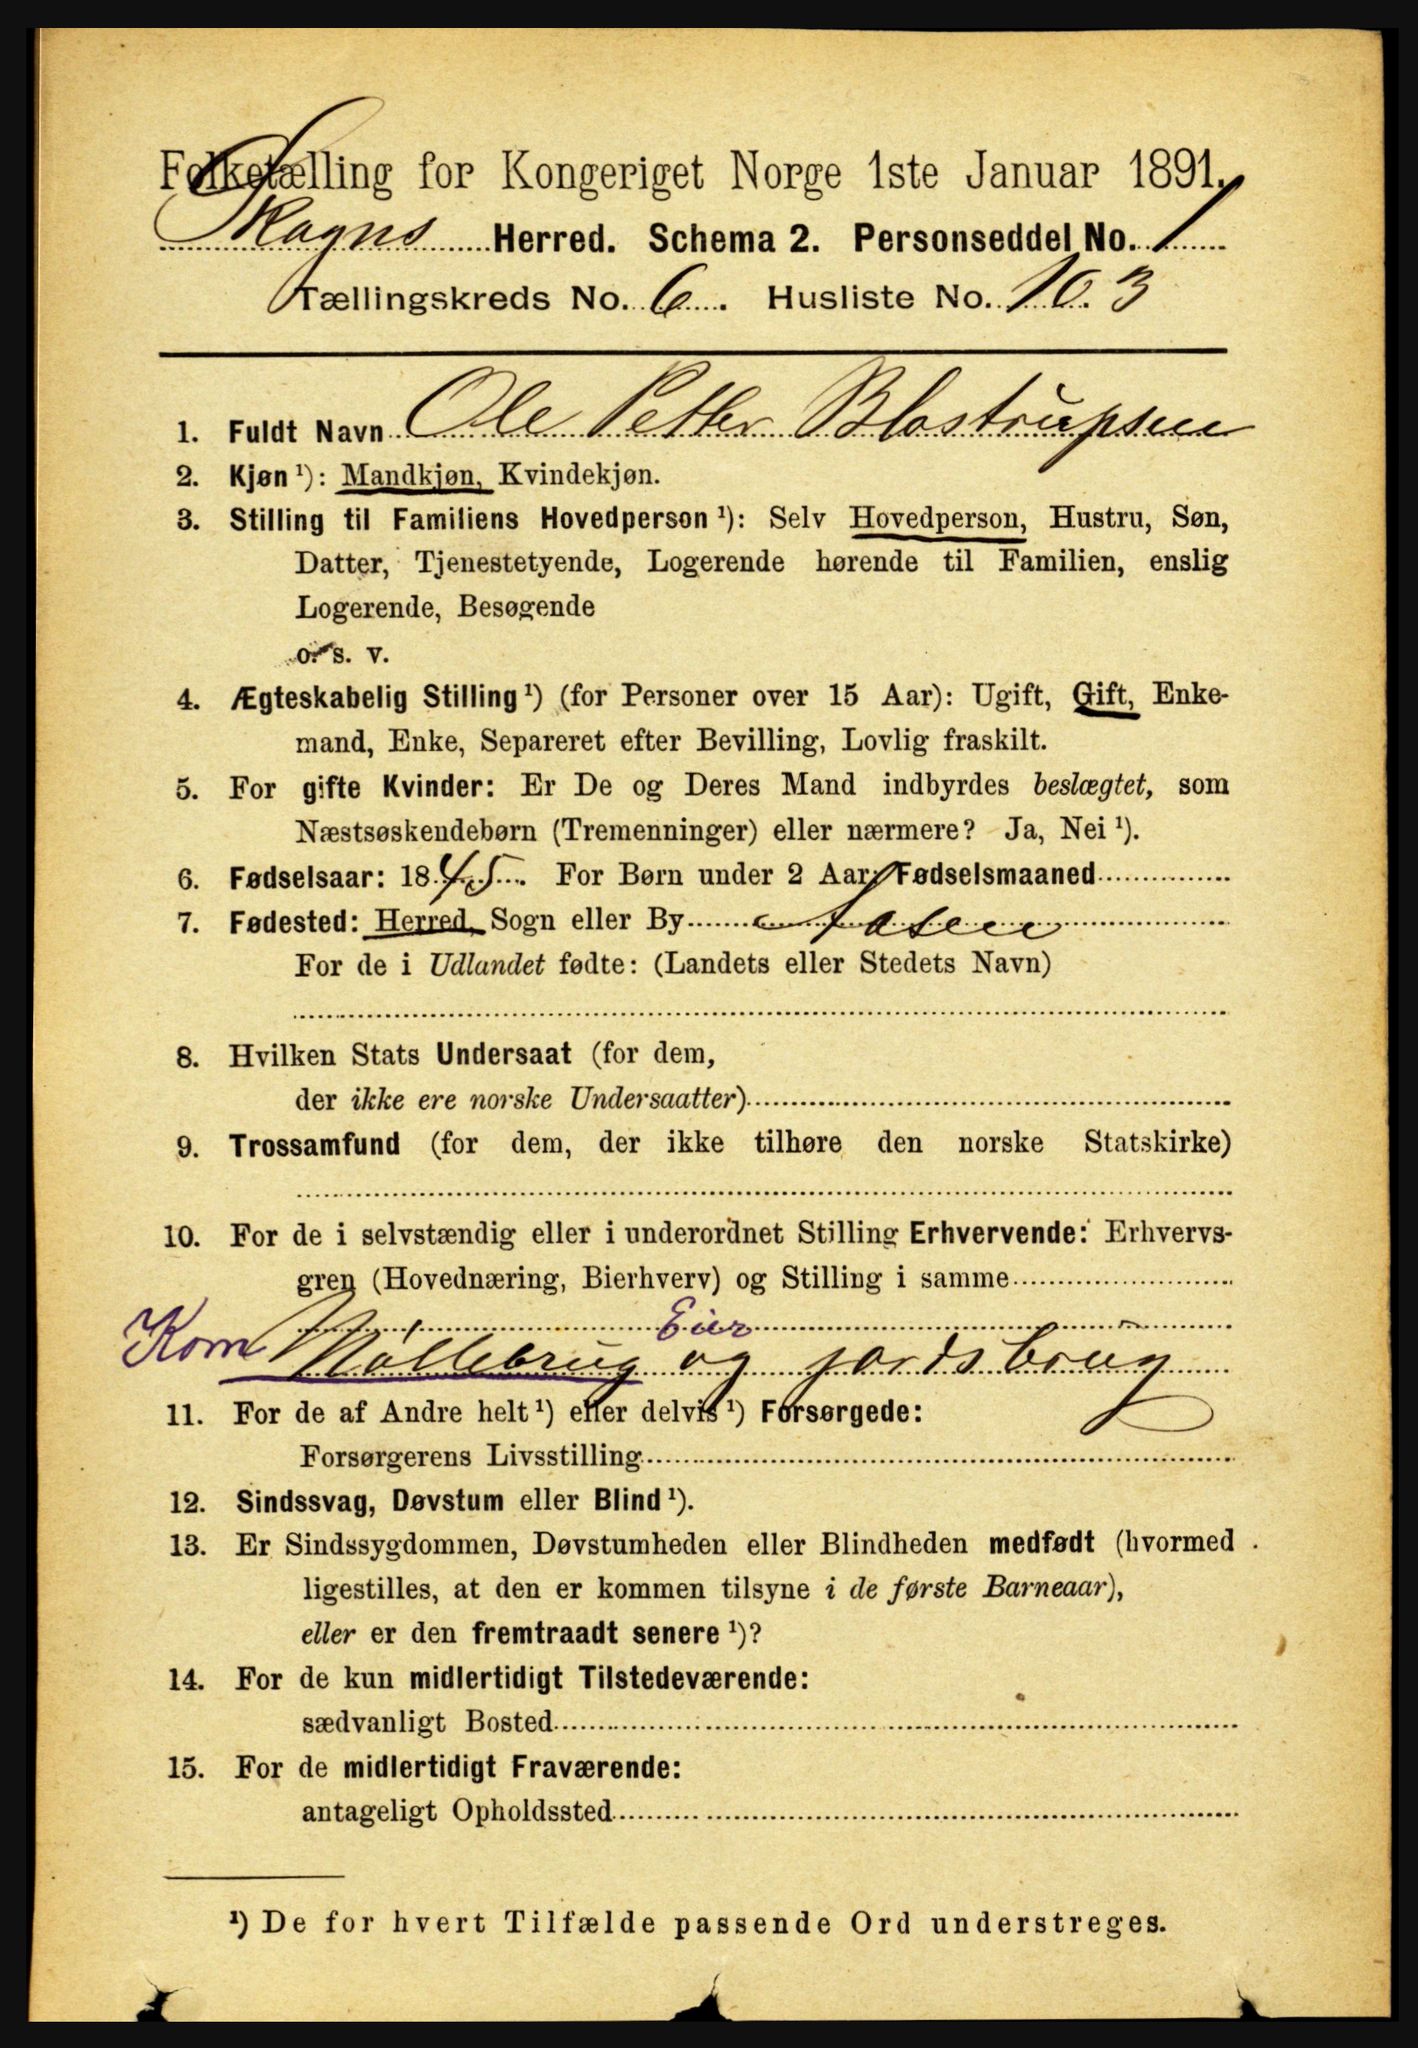 Folketælling for Kongeriget Norge 1ste Januar 1891.
Skogns Herred. Schema 2. Personseddel No. 1
Tællingskreds No. 6. Husliste No. 103
1. Fuldt Navn Ole Petter Blostrupsen
2. Kjøn ¹): Mandkjøn, Kvindekjøn.
3. Stilling til Familiens Hovedperson ¹): Selv Hovedperson, Hustru, Søn,
Datter, Tjenestetyende, Logerende hørende til Familien, enslig
Logerende, Besøgende
o. s. v.
4. Ægteskabelig Stilling ¹) (for Personer over 15 Aar): Ugift, Gift, Enke-
mand, Enke, Separeret efter Bevilling, Lovlig fraskilt.
5. For gifte Kvinder: Er De og Deres Mand indbyrdes beslægtet, som
Næstsøskendebørn (Tremenninger) eller nærmere? Ja, Nei ¹).
6. Fødselsaar: 1845. For Børn under 2 Aar: Fødselsmaaned
7. Fødested: Herred, Sogn eller By Aasen
For de i Udlandet fødte: (Landets eller Stedets Navn)
8. Hvilken Stats Undersaat (for dem,
der ikke ere norske Undersaatter)
9. Trossamfund (for dem, der ikke tilhøre den norske Statskirke)
10. For de i selvstændig eller i underordnet Stilling Erhvervende: Erhvervs-
gren (Hovednæring, Bierhverv) og Stilling i samme
Eier
Korn Møllebrug og jordsbrug
11. For de af Andre helt ¹) eller delvis ¹) Forsørgede:
Forsørgerens Livsstilling
12. Sindssvag, Døvstum eller Blind ¹).
13. Er Sindssygdommen, Døvstumheden eller Blindheden medfødt (hvormed
ligestilles, at den er kommen tilsyne i de første Barneaar),
eller er den fremtraadt senere ¹)?
14. For de kun midlertidigt Tilstedeværende:
sædvanligt Bosted
15. For de midlertidigt Fraværende:
antageligt Opholdssted
¹) De for hvert Tilfælde passende Ord understreges.